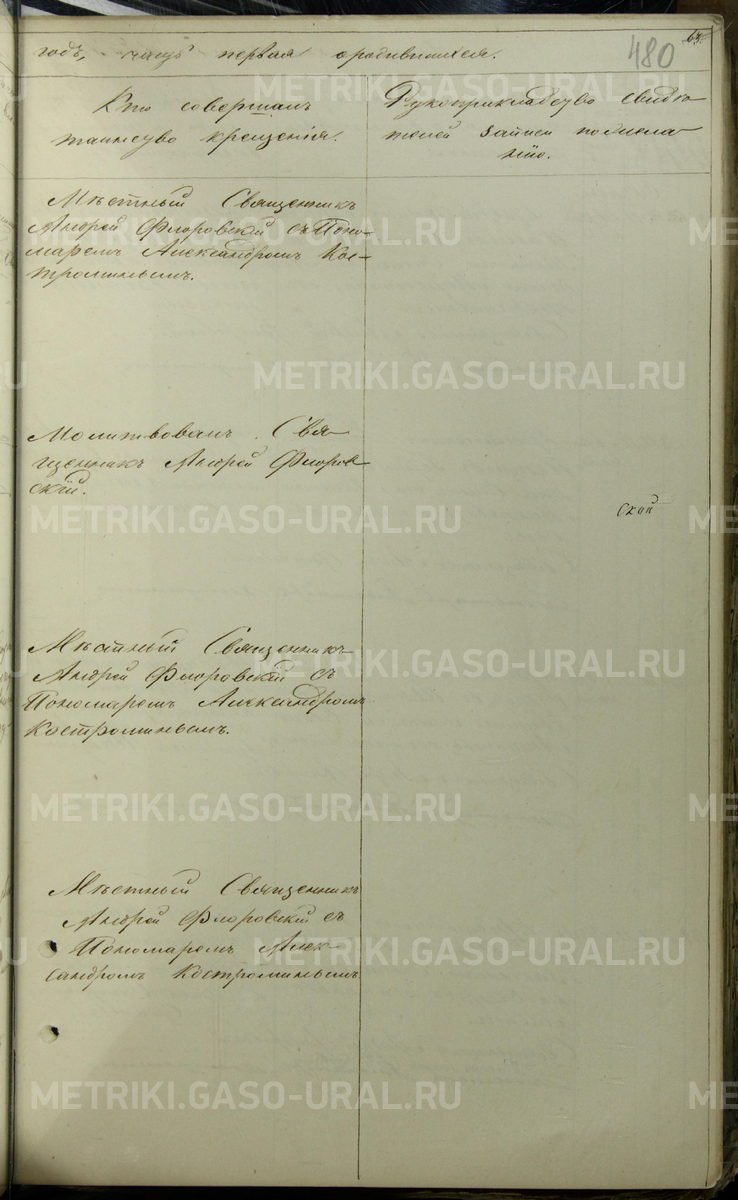 480
годъ, часть первая о родившихся.
Кто совершалъ
таинство крещенія.
Рукоприкладство свидѣ-
телей записи по жела-
нію.
Мѣстный Священникъ
Андрей Флоровскій съ Поно-
маремъ Александромъ Кос-
троминымъ.
Молитвовалъ Свя-
щенникъ Андрей Флоров-
скій.
ской
Мѣстный Священникъ
Андрей Флоровскій съ
Пономаремъ Александромъ
Костроминымъ.
Мѣстный Священникъ
Андрей Флоровскій съ
Пономаремъ Алек-
сандромъ Костроминымъ
METRIKI.GASO-URAL.RU